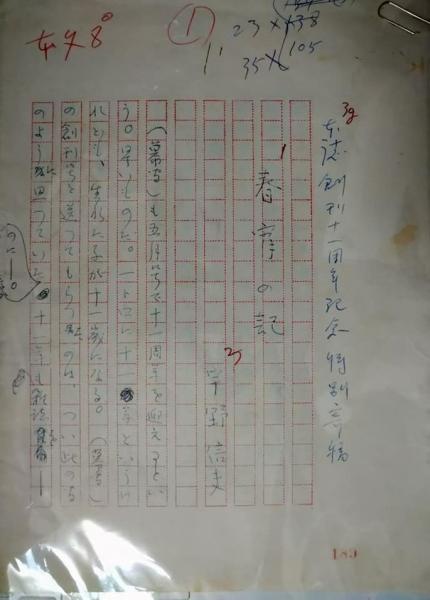 本文8
①
23×138
105
35×
本誌創刊十一周年記念特別寄稿
春宵の記
宇野信夫
(幕間)も五月号で十一周年を迎えるとい
う。早いものだ。一と口に十一年というけ
れども、生れた子が十一歳になる。(幕間)
の創刊号を送ってもらったのは、つい此のう
のように思っていた 十一年も雑誌
189